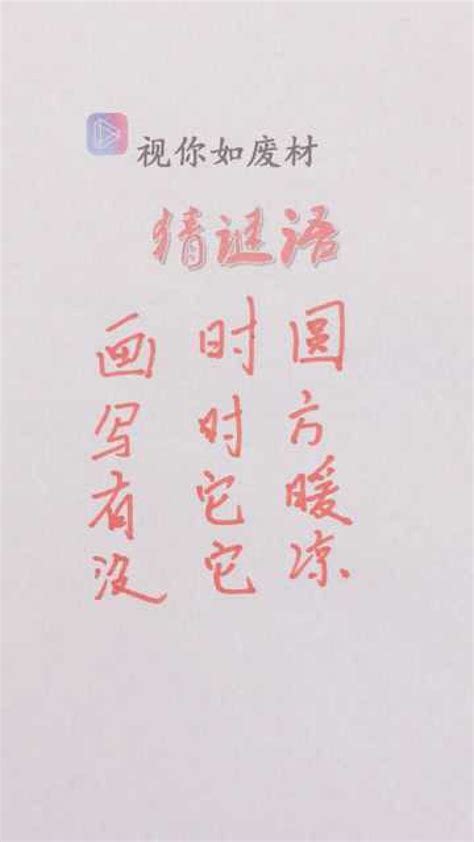 视你如废材
猜谜语
画时圆
写时方
有它暖
没它凉